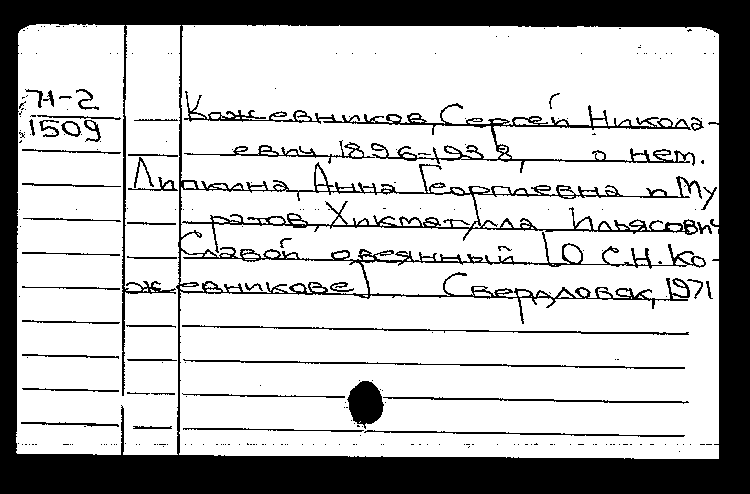 71-2
1509
Кожевников, Сергей Никола-
евич, 1896-1938, о нем.
Липкина, Анна Георгиевна и Му
ратов, Хикматулла Ильясович
Славой овеянный [О С.Н. Ко-
жевникове] Свердловск, 1971